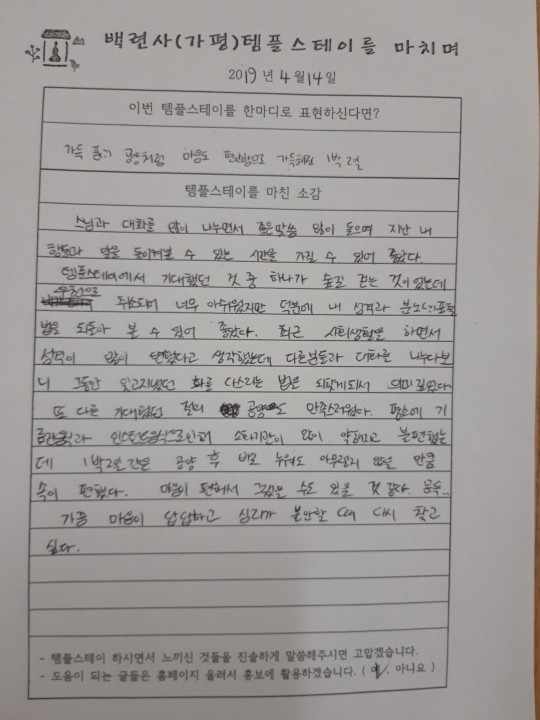 백련사(가평)템플스테이를 마치며
2019년 4월 14일
이번 템플스테이를 한마디로 표현하신다면?
가득 공양처럼 마음도 편안함으로 가득해진 1박 2일
템플스테이를 마친 소감
스님과 대화를 많이 나누면서 좋은말씀 많이 들으며 지난 내
행동과 말을 돌이켜볼 수 있는 시간을 가질 수 있어 좋았다.
템플스테이에서 기대했던 것 중 하나가 숲길 걷는 것이었는데
우천으로 취소되어 너무 아쉬웠지만 덕분에 내 성격과 분노(?)표출
법을 되돌아 볼 수 있어 좋았다. 최근 사회생활을 하면서
성격이 많이 변했다고 생각했는데 다른분들과 대화를 나누다보
니 그동안 잊고지냈던 화를 다스리는 법을 되찾게되서 의미 깊었다
또 다른 기대했던 절의 공양도 만족스러웠다. 평소에 기
름진음식과 인스턴트음식으로인해 소화기관이 많이 약해지고 불편했는
데 1박2일간은 공양 후 바로 누워도 아무렇지 않을 만큼
속이 편했다. 마음이 편해서 그랬을 수도 있을 것 같다. 문득..
가끔 마음이 답답하고 심리가 불안할 때 다시 찾고
싶다.
- 템플스테이 하시면서 느끼신 것들을 진솔하게 말씀해주시면 고맙겠습니다.
- 도움이 되는 글들은 홈페이지 올려서 홍보에 활용하겠습니다. ( 예. 아니요 )